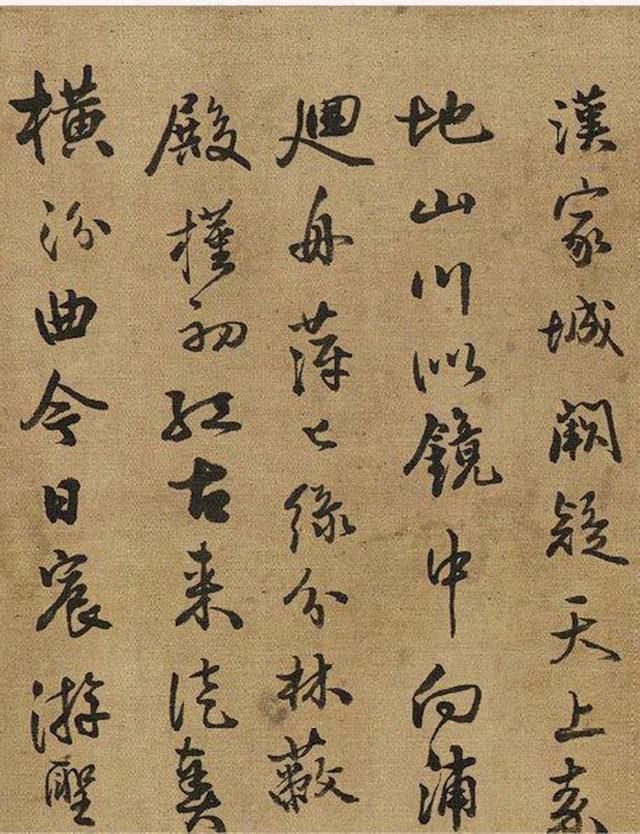 漢家城闕疑天上秦
地山川似鏡中向浦
迴舟萍已緑分林蔽
殿槿初紅古来徒奏
橫汾曲今日宸游聖